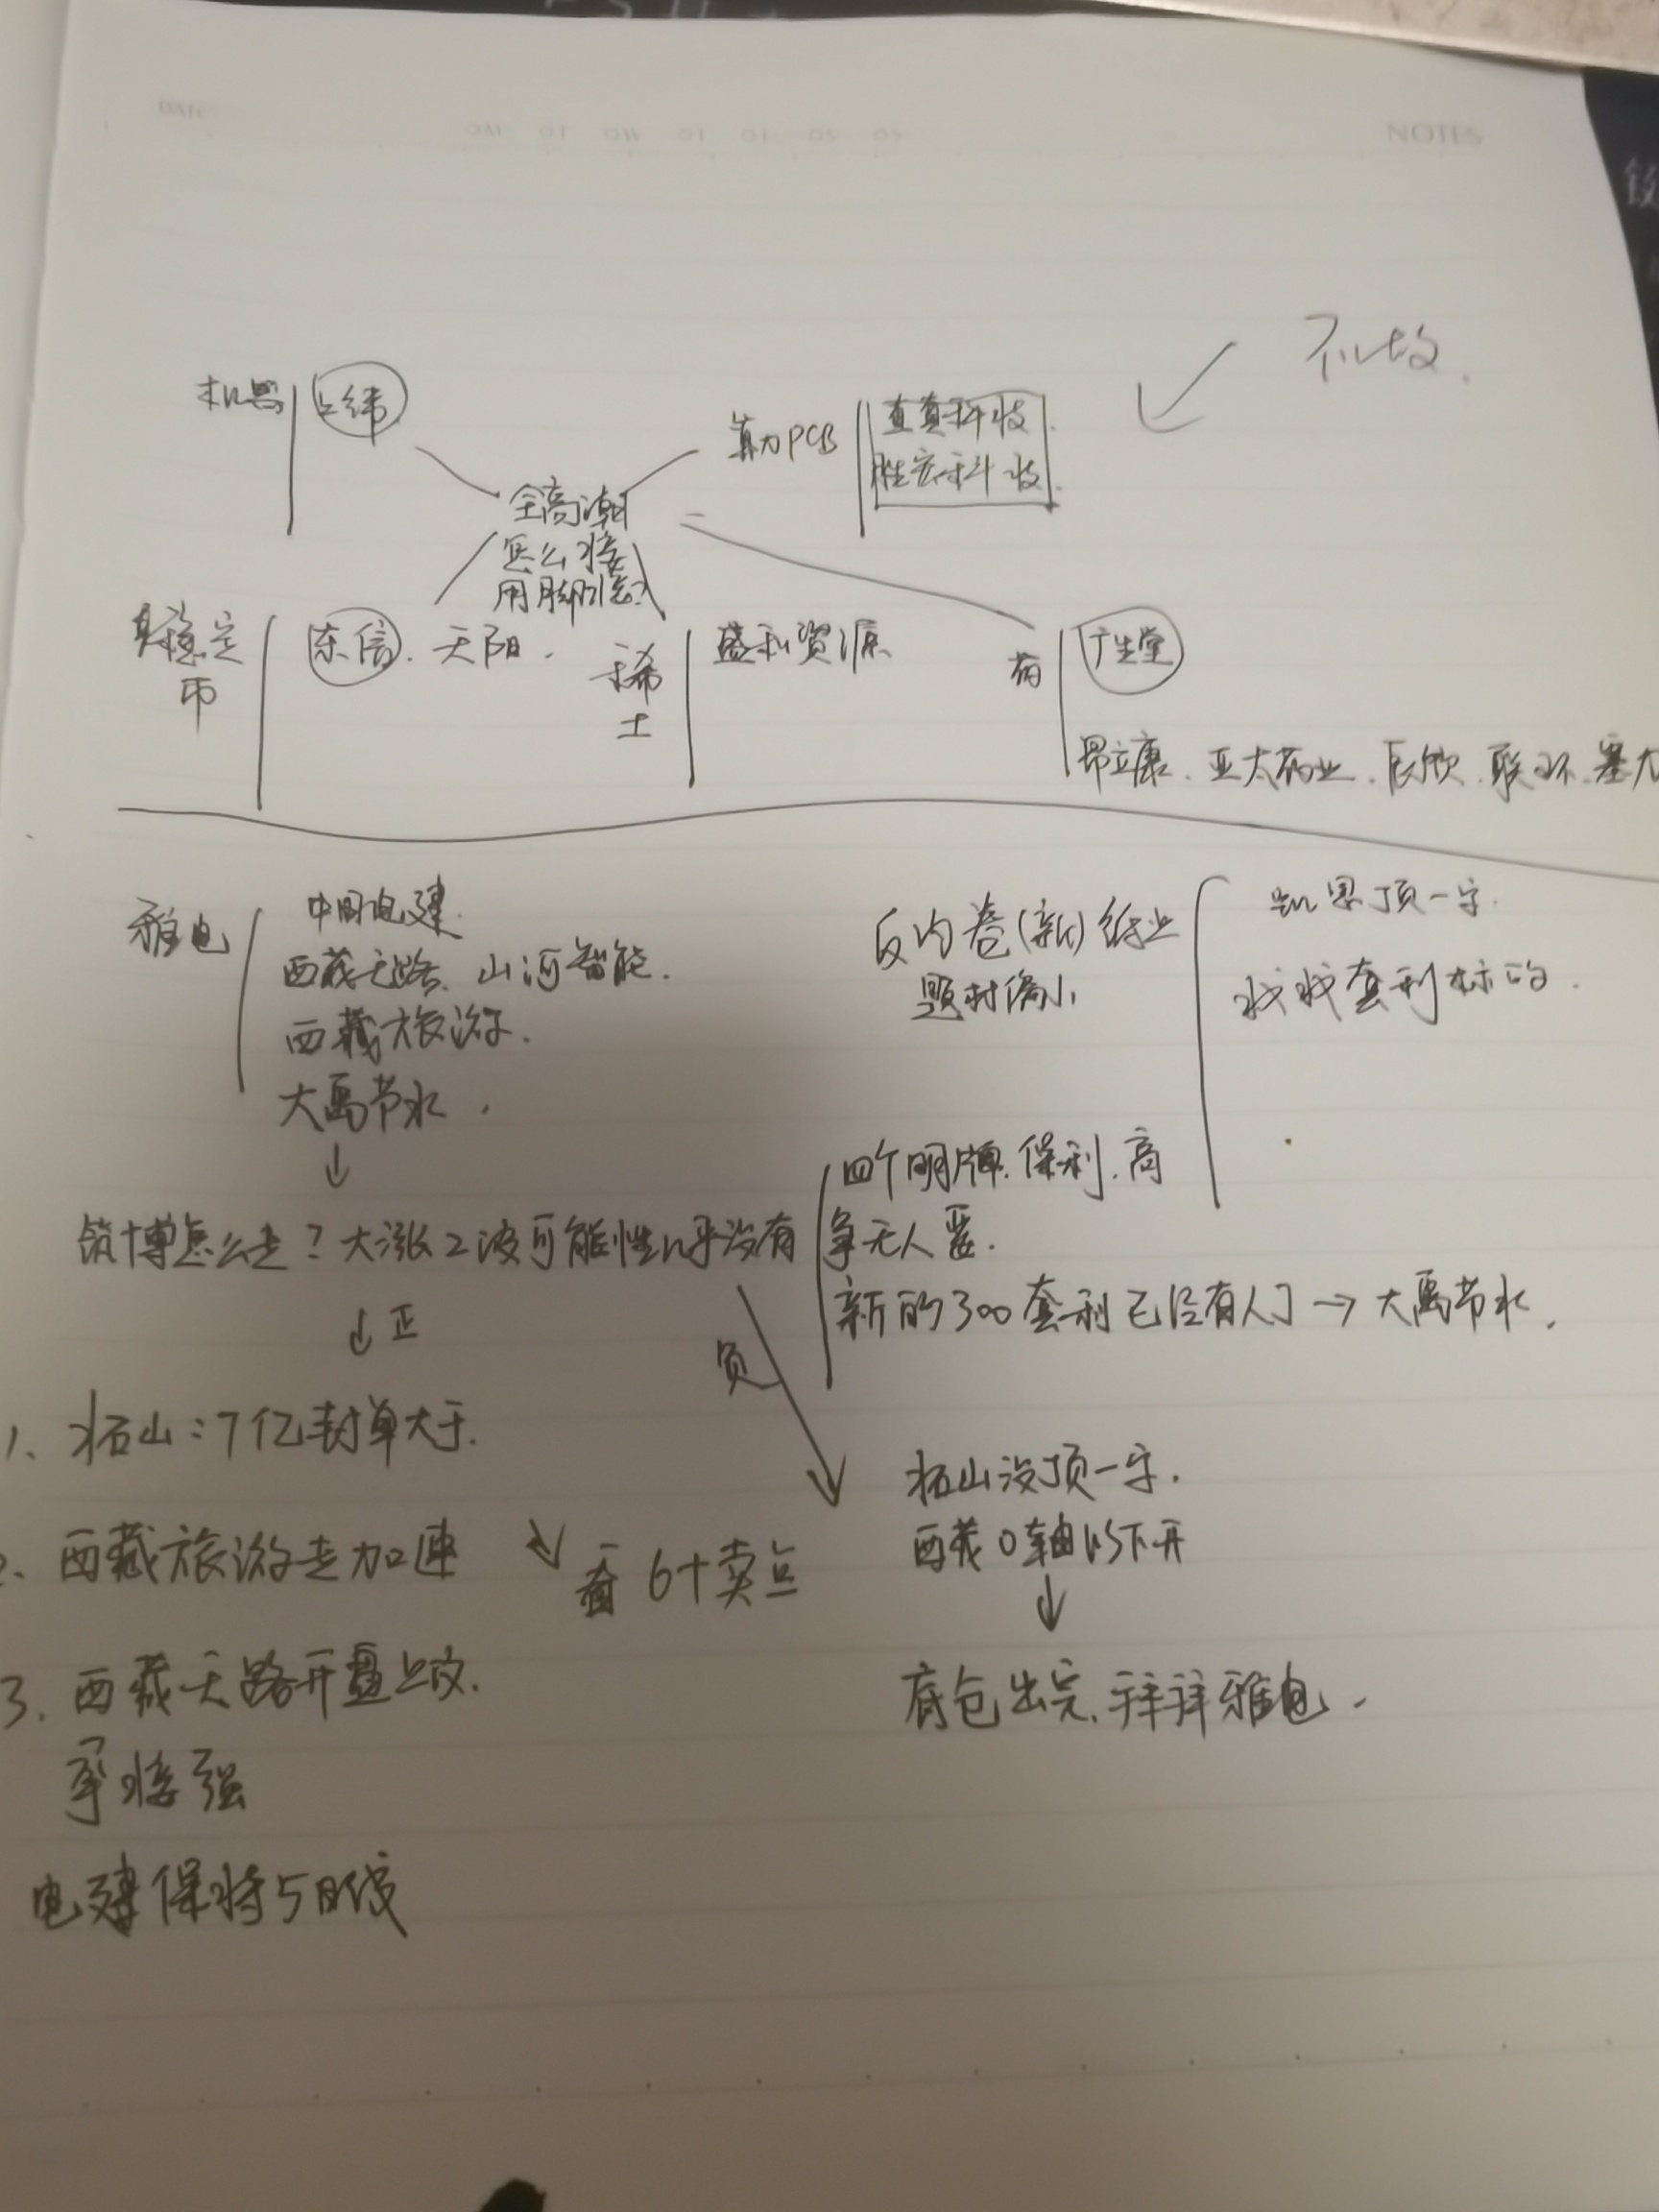 DATE
NOTES
不做.
机器 上纬
算力PCB 直真科技.
胜宏科技.
全高潮
怎么接
用脚
稳定
币
东信. 天阳.
稀
土
盛和资源
药 广生堂
昂立康. 亚太药业. 辰欣. 联环. 塞力
雅电
中国电建.
西藏天路. 山河智能.
西藏旅游.
大禹节水.
反内卷(新) 纸业
题材偏小
凯恩顶一字.
找找套利标的.
↓
筑博怎么走? 大涨2波可能性几乎没有
四个明牌. 保利. 高
争无人
新的300套利已经有人了→大禹节水.
↓正
负
1. 柘山:7亿封单大于.
2. 西藏旅游走加速
看6个卖点
3. 西藏天路开盘上攻.
承接强
电建保持5日线
柘山没顶一字.
西藏0轴以下开
↓
底仓出完. 拜拜雅电.